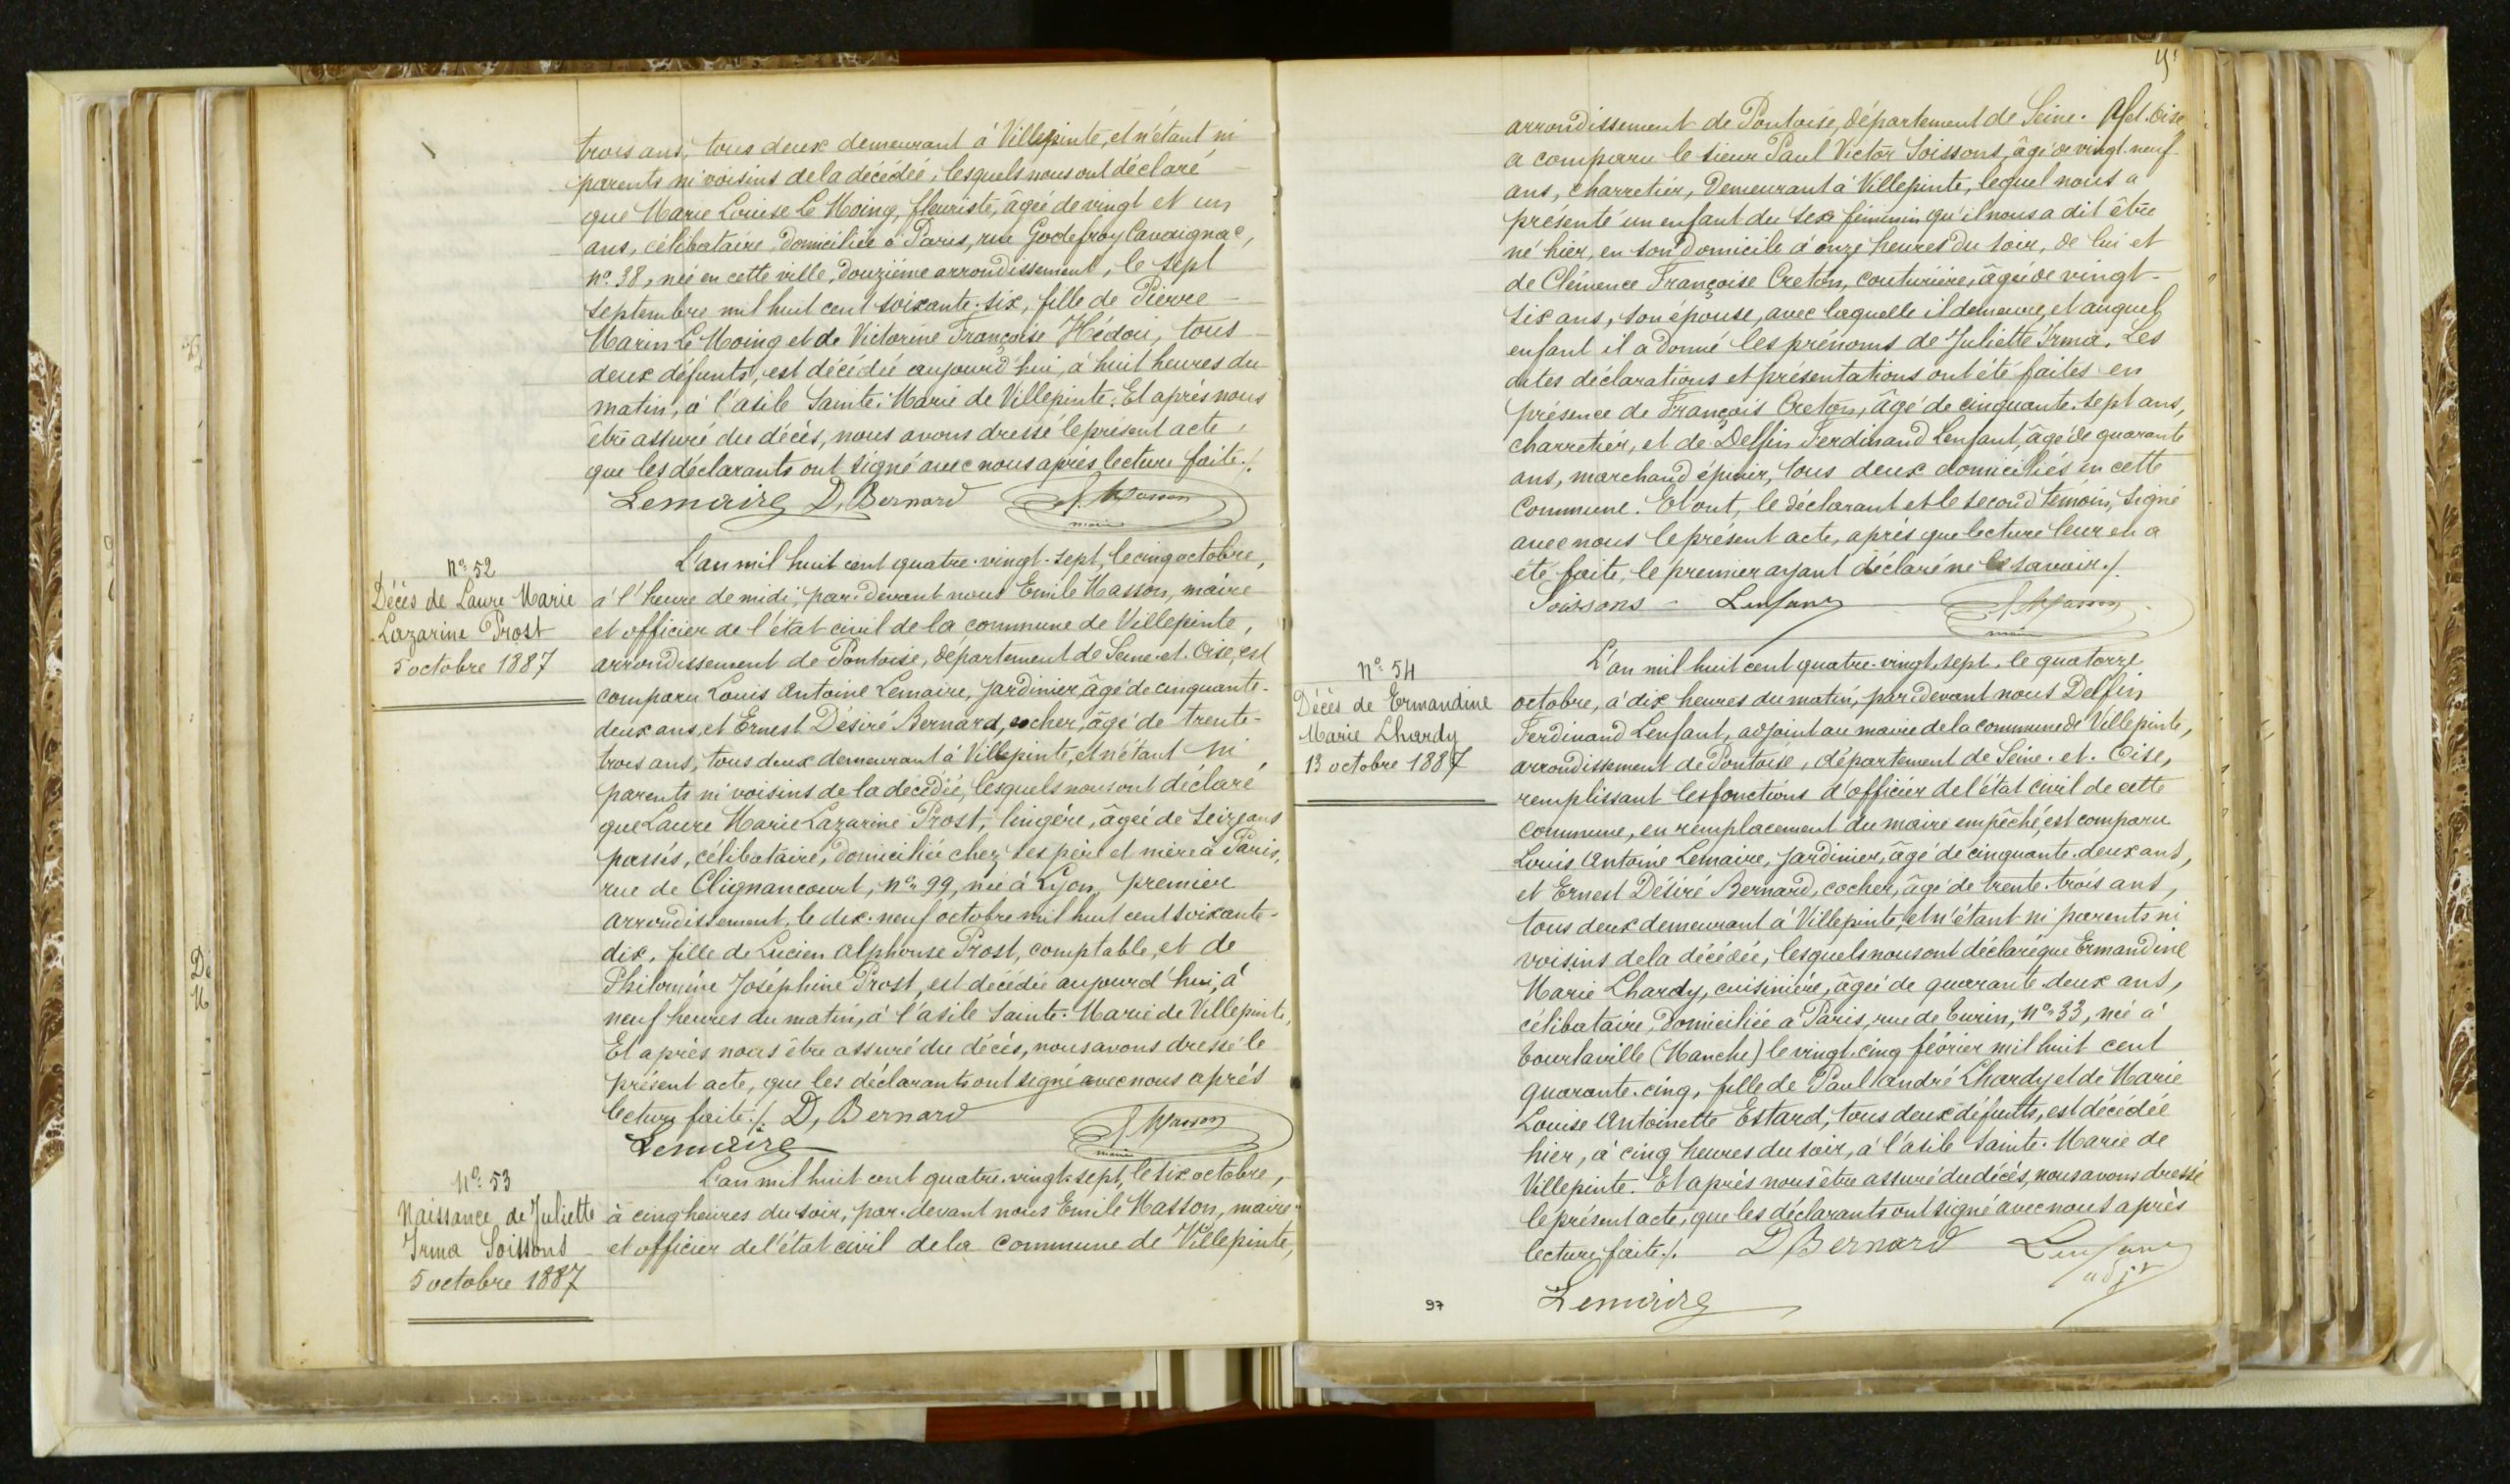 trois ans, tous deux demeurant à Villepinte, et n'étant ni
parents ni voisins de la décédée, lesquels nous ont déclaré
que Marie Louise Le Moing, fleuriste, âgée de vingt et un
ans, célibataire, domiciliée à Paris, rue Godefroy Cavaignac,
n° 38, née en cette ville, douzième arrondissement, le sept
septembre mil huit cent soixante-six, fille de Pierre
Marin Le Moing et de Victorine Françoise Hédou, tous
deux défunts, est décédée aujourd'hui, à huit heures du
matin, à l'asile Sainte-Marie de Villepinte. Et après nous
être assuré du décès, nous avons dressé le présent acte,
que les déclarants ont signé avec nous après lecture faite ./.
Lemaire D, Bernard E. Masson
maire
N° 52
Décès de Laure Marie
Lazarine Prost
5 octobre 1887
L'an mil huit cent quatre-vingt-sept, le cinq octobre,
à l'heure de midi, par-devant nous Emile Masson, maire
et officier de l'état civil de la commune de Villepinte,
arrondissement de Pontoise, département de Seine-et-Oise, est
comparu Louis Antoine Lemaire, jardinier, âgé de cinquante-
deux ans, et Ernest Désiré Bernard, cocher, âgé de trente-
trois ans, tous deux demeurant à Villepinte, et n'étant ni
parents ni voisins de la décédée, lesquels nous ont déclaré
que Laure Marie Lazarine Prost, lingère, âgée de seize ans
passés, célibataire, domiciliée chez ses père et mère à Paris,
rue de Clignancourt, n° 99, née à Lyon, premier
arrondissement, le dix-neuf octobre mil huit cent soixante-
dix, fille de Lucien Alphonse Prost, comptable, et de
Philomène Joséphine Prost, est décédée aujourd'hui, à
neuf heures du matin, à l'asile Sainte-Marie de Villepinte,
Et après nous être assuré du décès, nous avons dressé le
présent acte, que les déclarants ont signé avec nous après
lecture faite ./. D, Bernard E. Masson
Lemaire maire
N° 53
Naissance de Juliette
Irma Soissons
5 octobre 1887
L'an mil huit cent quatre-vingt-sept, le six octobre,
à cinq heures du soir, par-devant nous Emile Masson, maire
et officier de l'état civil de la commune de Villepinte,
arrondissement de Pontoise, département de Seine-et-Oise
a comparu le sieur Paul Victor Soissons, âgé de vingt-neuf
ans, charretier, demeurant à Villepinte, lequel nous a
présenté un enfant du sexe féminin qu'il nous a dit être
né hier, en son domicile à onze heures du soir, de lui et
de Clémence Françoise Creton, couturière, âgée de vingt-
six ans, son épouse, avec laquelle il demeure, et auquel
enfant il a donné les prénoms de Juliette Irma. Les
dites déclarations et présentations ont été faites en
présence de François Creton, âgé de cinquante-sept ans,
charretier, et de Delfin Ferdinand Lenfant, âgé de quarante
ans, marchand épicier, tous deux domiciliés en cette
commune. Et ont, le déclarant et le second témoin, signé
avec nous le présent acte, après que lecture leur en a
été faite, le premier ayant déclaré ne le savoir ./.
Soissons Lenfant E. Masson
maire
N° 54
Décès de Ermandine
Marie Lhardy
13 octobre 1887
L'an mil huit cent quatre-vingt-sept, le quatorze
octobre, à dix heures du matin, par devant nous Delfin
Ferdinand Lenfant, adjoint au maire de la commune de Villepinte,
arrondissement de Pontoise, département de Seine-et-Oise,
remplissant les fonctions d'officier de l'état civil de cette
commune, en remplacement du maire empêché, est comparu
Louis Antoine Lemaire, jardinier, âgé de cinquante-deux ans,
et Ernest Désiré Bernard, cocher, âgé de trente-trois ans,
tous deux demeurant à Villepinte, et n'étant ni parents ni
voisins de la décédée, lesquels nous ont déclaré que Ermandine
Marie Lhardy, cuisinière, âgée de quarante-deux ans,
célibataire, domiciliée à Paris, rue de Turin, n° 33, née à
Tourlaville (Manche) le vingt-cinq février mil huit cent
quarante-cinq, fille de Paul André Lhardy et de Marie
Louise Antoinette Estard, tous deux défunts, est décédée
hier, à cinq heures du soir, à l'asile Sainte-Marie de
Villepinte. Et après nous être assuré du décès, nous avons dressé
le présent acte, que les déclarants ont signé avec nous après
lecture faite ./. D Bernard Lenfant
adjt
Lemaire
97